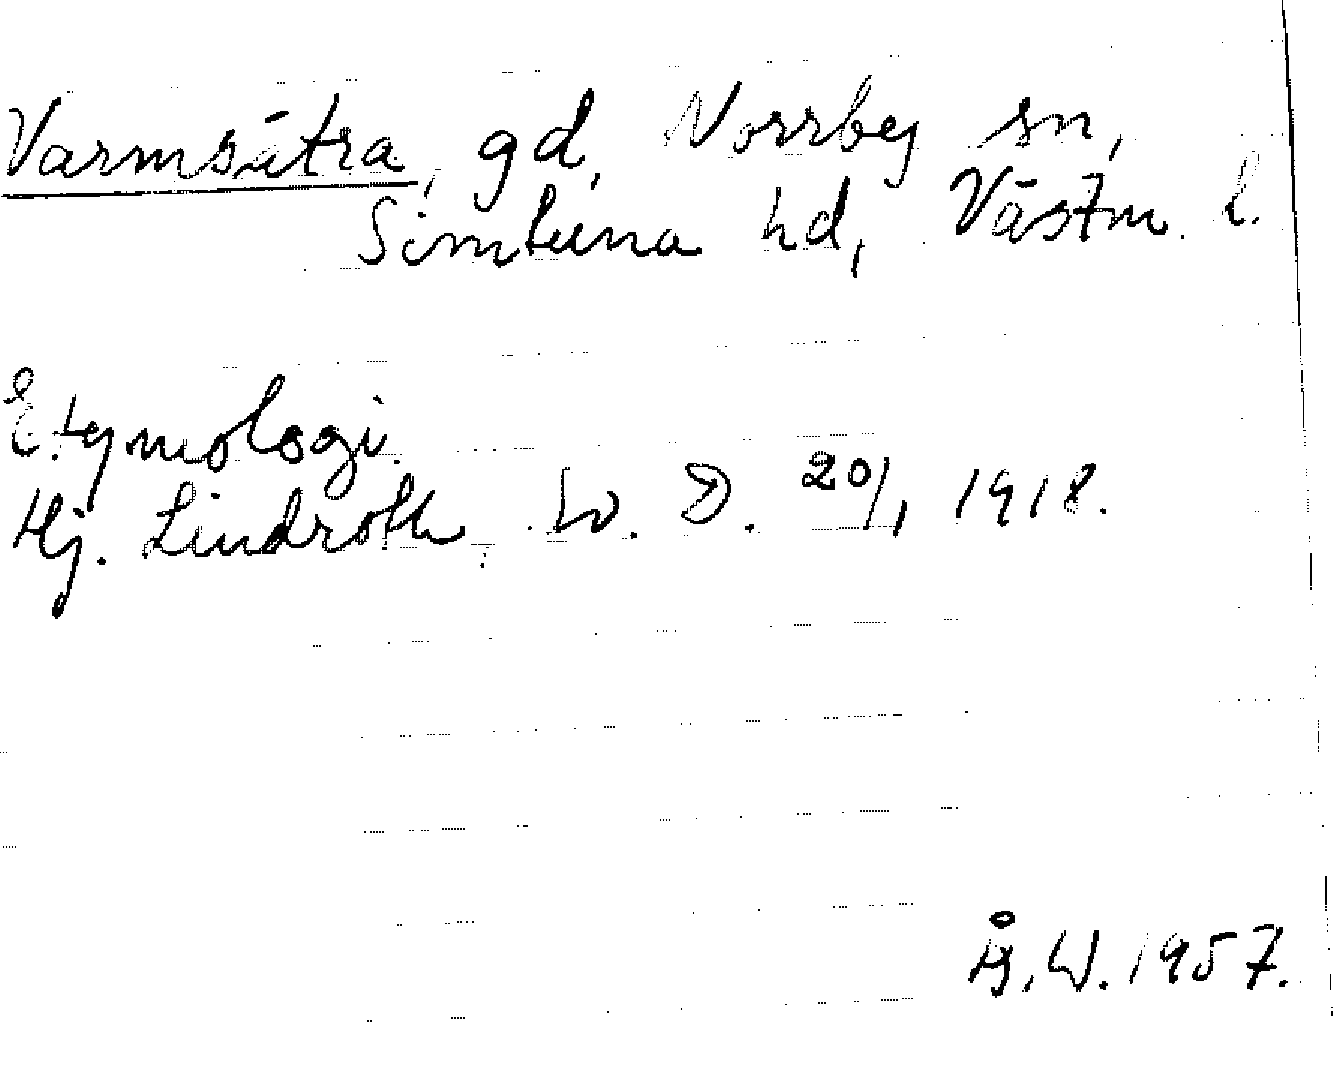 Varmsätra, gd, Norrby sn,
Simtuna hd, Västm. l.
Etymologi.
Hj. Lindroth i. 20/1 1918.
Å. W. 1957.